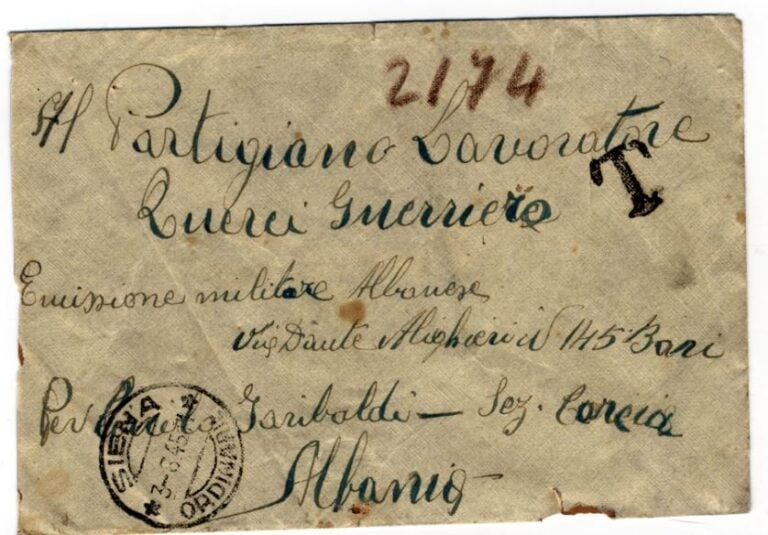 2174
Al Partigiano Lavoratore
T
Querci Guerriero
Emissione militare Albanese
Via Dante Alighieri N 145 Bari
Per Garibaldi - Sez. Corcia
Albania
SIENA
3-6 45
ORDINARIE